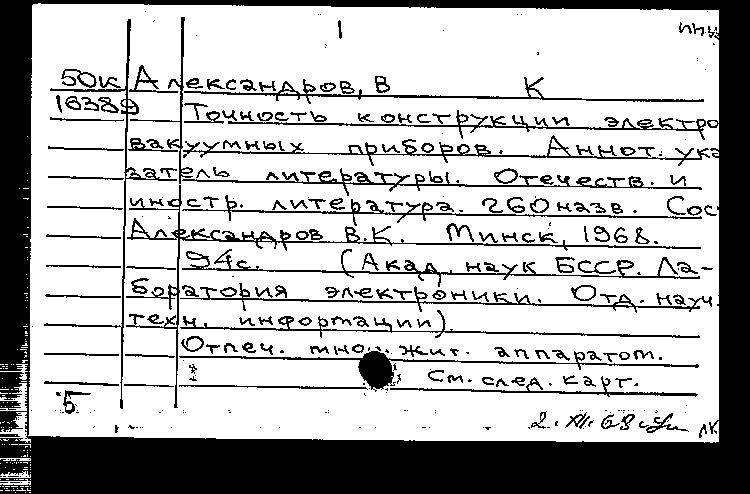 50к Александров, В К
16389 Точность конструкции электро
вакуумных приборов. Аннот. ука
затель литературы. Отечеств. и
иностр. литература. 260 назв. Сос
Александров В.К. Минск, 1968.
94с. (Акад. наук БССР. Ла-
боратория электроники. Отд. науч.
техн. информации).
Отпеч. аппаратом.
См. след. карт.
5
2. XII. 68